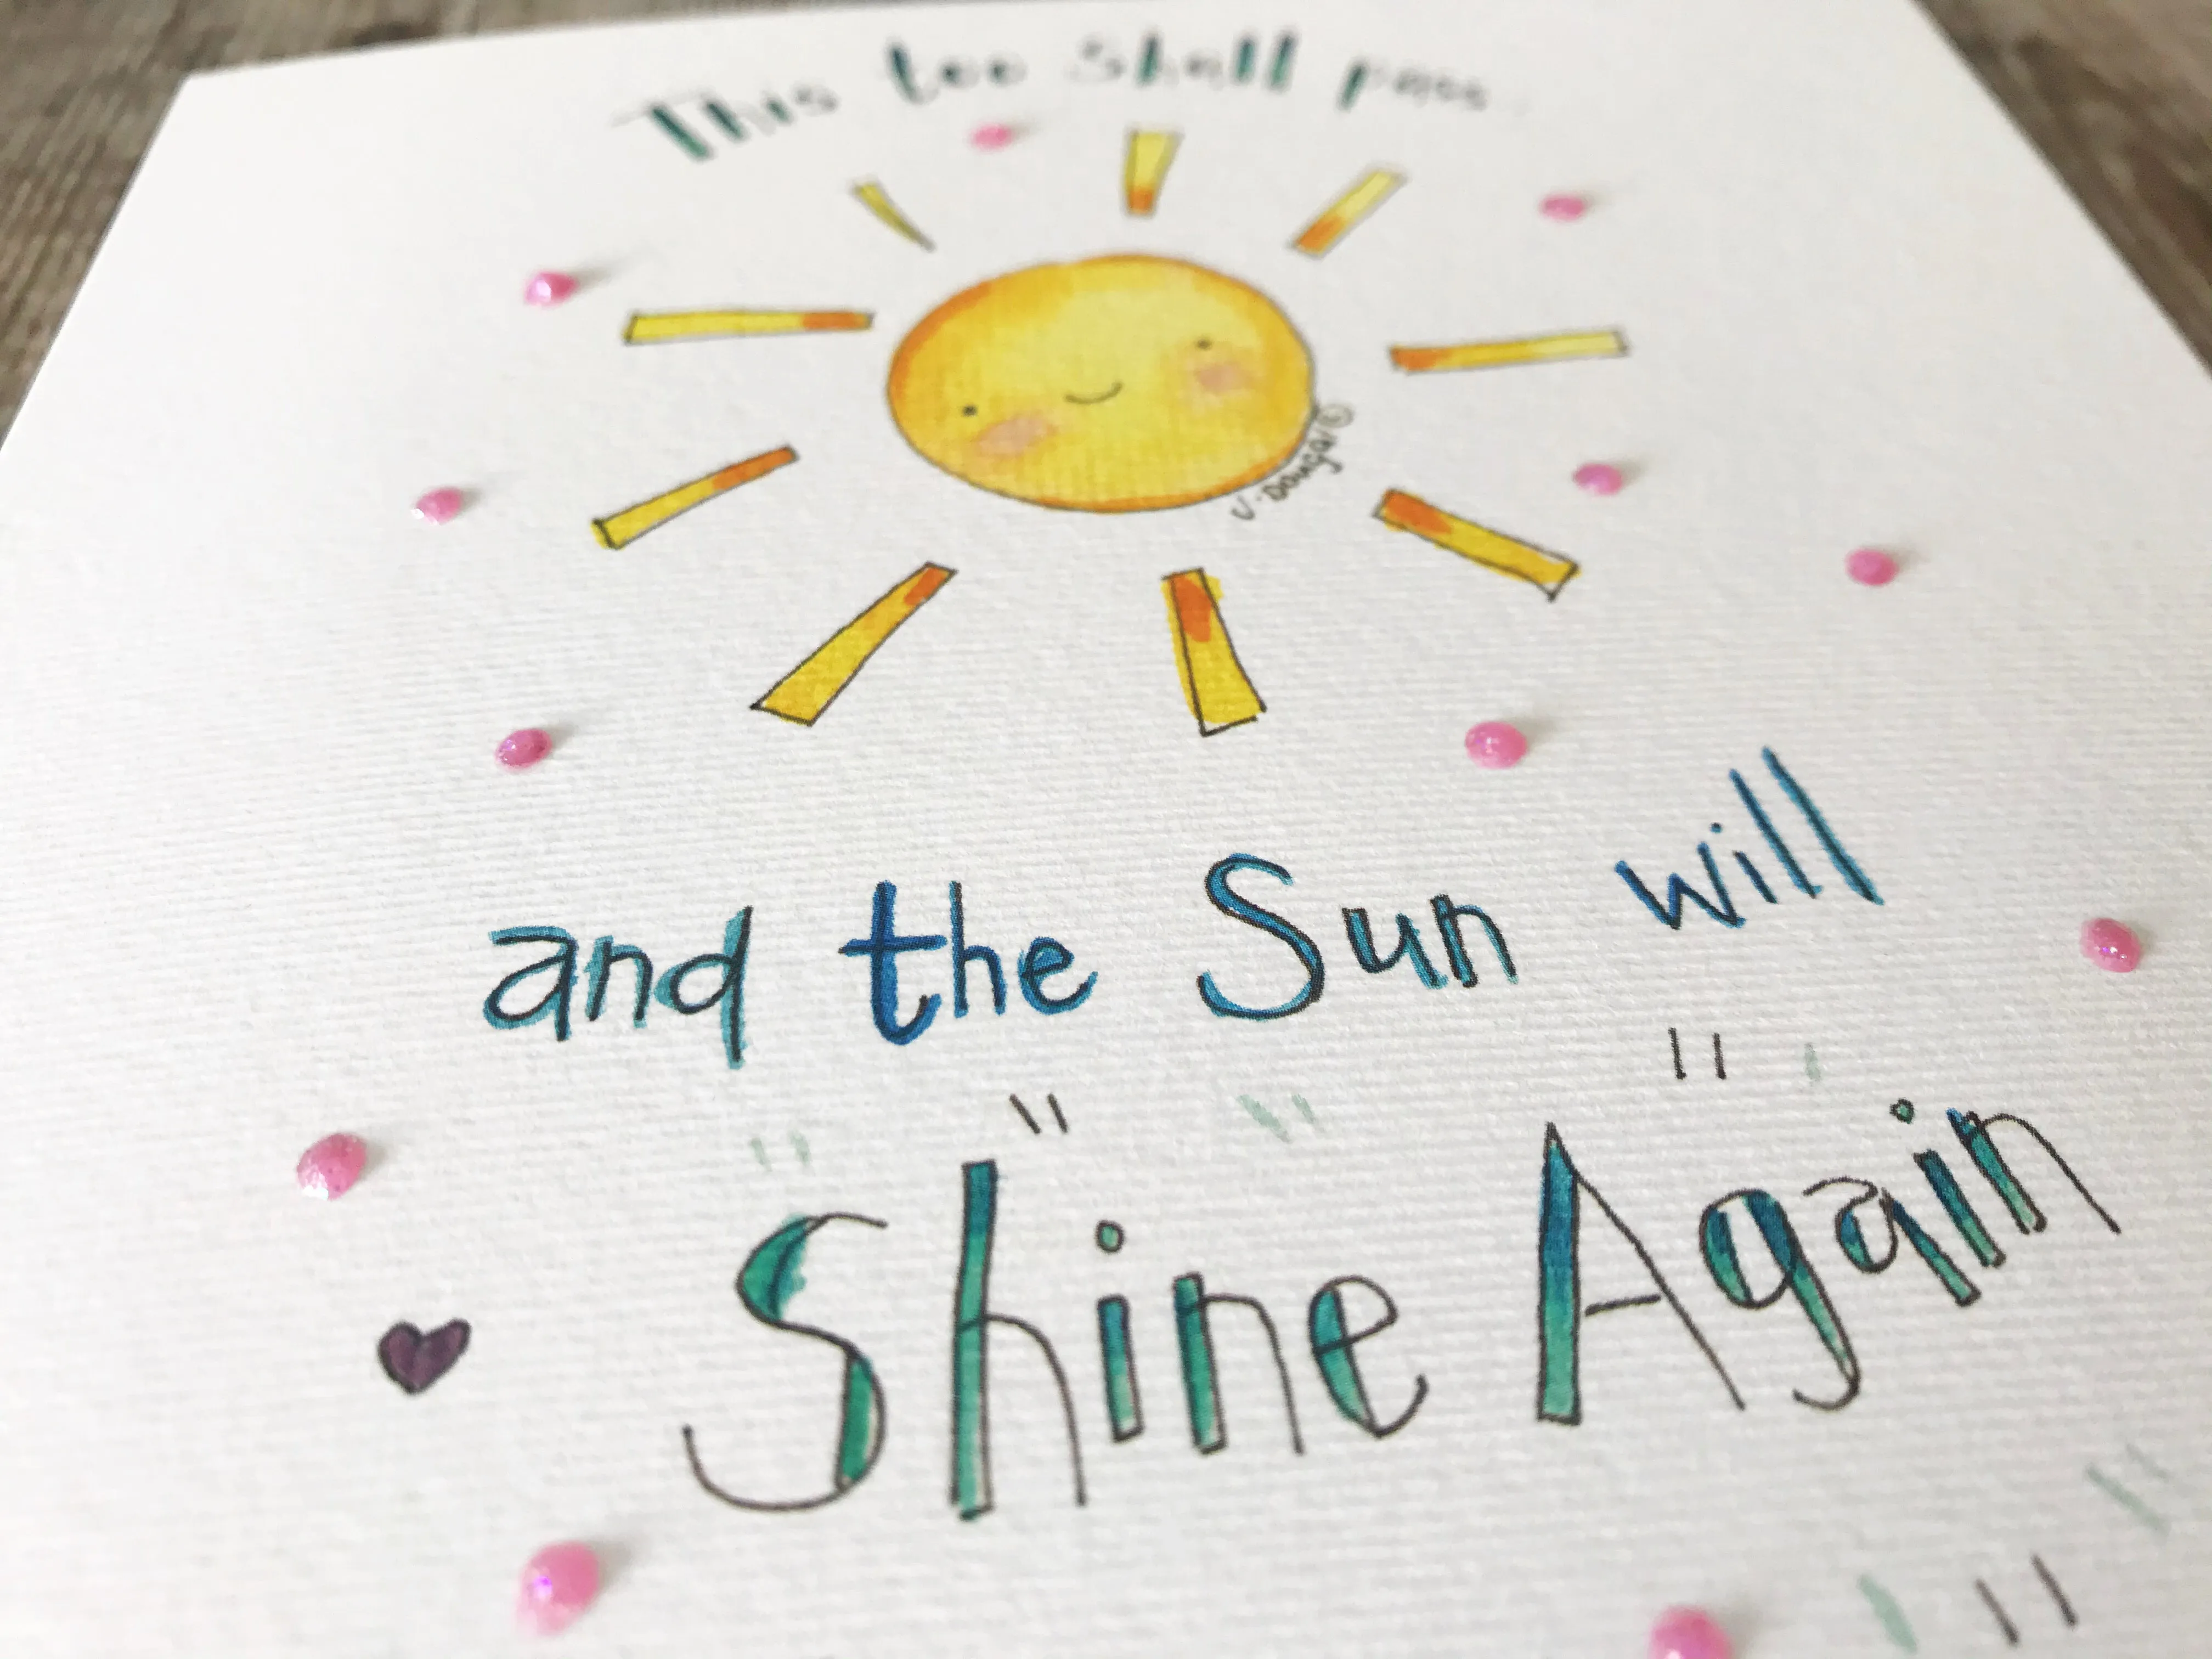 This too shall pass
V. Dougal ©
and the Sun will
Shine Again